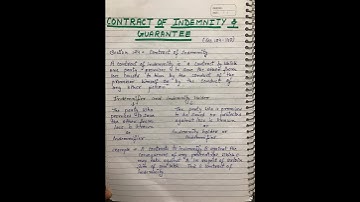 CONTRACT OF INDEMNITY &
GUARANTEE
Section 124: Contract of Indemnity
A contract of indemnity is "a contract by which
one party promises to save the other from
loss caused to him by the conduct of the
promisor himself or by the conduct of
any other person."
Indemnifier and Indemnity holder
The party who The party who is promised
promises to save to be saved or protected
the other from against loss is known
loss is known as
as Indemnity holder or
Indemnifier
Example: A contracts to indemnify B against the
consequences of any proceedings which C
may take against B in respect of certain
sum of This is contract of
indemnity